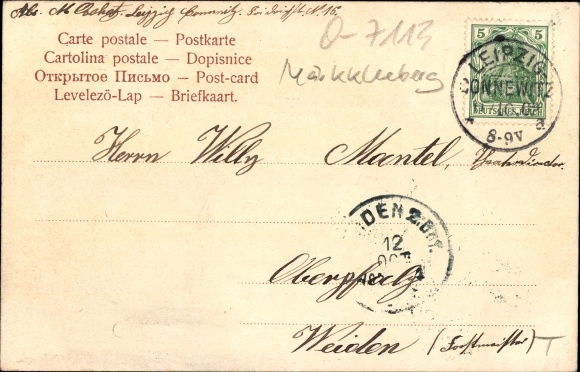 Abs. M. Leipzig Connewitz, Friedrichstr. N. 16.
Carte postale — Postkarte
Cartolina postale — Dopisnice
Открытое Письмо — Post-card
Levelező-Lap — Briefkaart.
O-7113
Markkleeberg
5 5
DEUTSCHES REICH
LEIPZIG-
CONNEWITZ
8-9V
a
Herrn Willy Mantel,
DEN 2.BHF.
12
OCT
Oberpfalz
Weiden (Forstmeister)
T